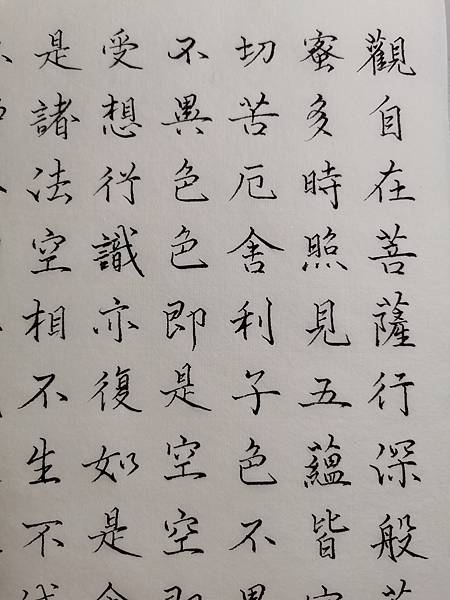 觀自在菩薩行深般
蜜多時照見五蘊皆
切苦厄舍利子色不
不異色色即是空空
受想行識亦復如是
是諸法空相不生不